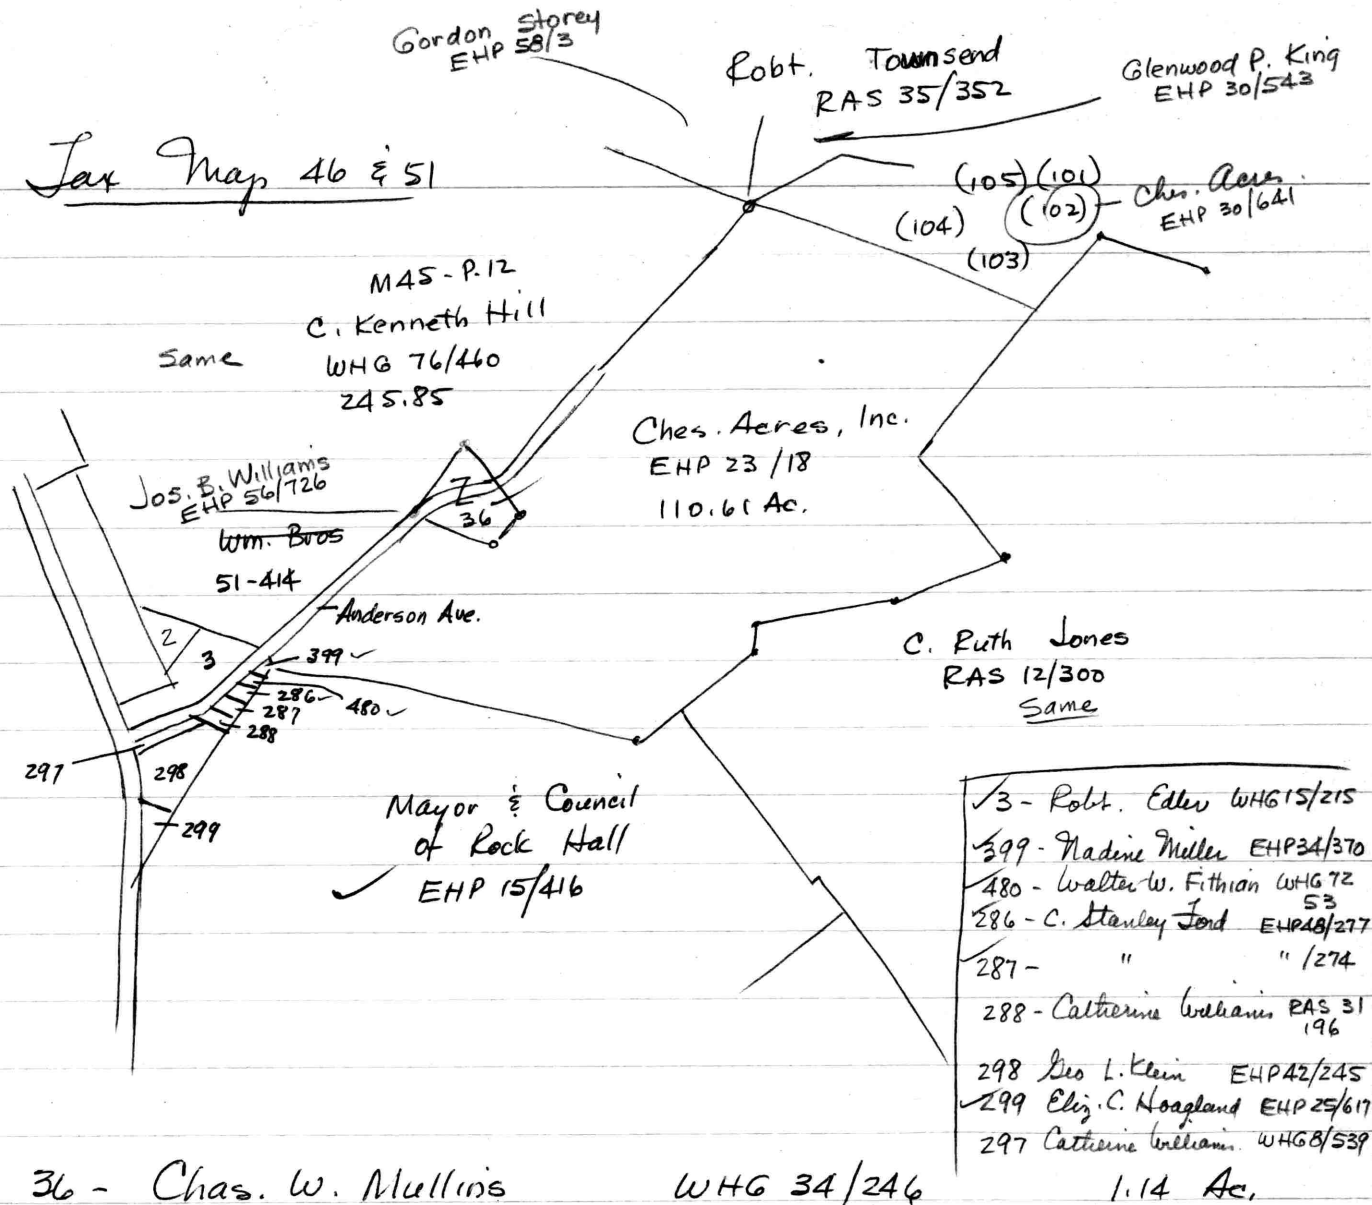 Gordon Storey
EHP 58/3
Robt. Townsend
RAS 35/352
Glenwood P. King
EHP 30/543
Tax Map 46 & 51
(105) (101)
(102)
Ches. Acres
EHP 30/641
(104)
(103)
M45-P.12
C. Kenneth Hill
Same
WHG 76/460
245.85
Ches. Acres, Inc.
EHP 23/18
110.61 Ac.
Jos. B. Williams
EHP 56/726
Wm. Bros
51-414
Z
36
Anderson Ave.
2
3
399 ✓
286 ✓
480 ✓
287
288
297
298
299
C. Ruth Jones
RAS 12/300
Same
Mayor & Council
of Rock Hall
✓ EHP 15/416
✓3 - Robt. Edler WHG 15/215
✓399 - Nadine Miller EHP 34/370
✓480 - Walter W. Fithian WHG 72
53
286 - C. Stanley Ford EHP 48/277
✓287 - " " /274
288 - Catherine Williams RAS 31
196
298 Geo L. Klein EHP 42/245
✓299 Eliz. C. Hoagland EHP 25/617
297 Catherine Williams. WHG 8/539
36 - Chas. W. Mullins WHG 34/246 1.14 Ac.